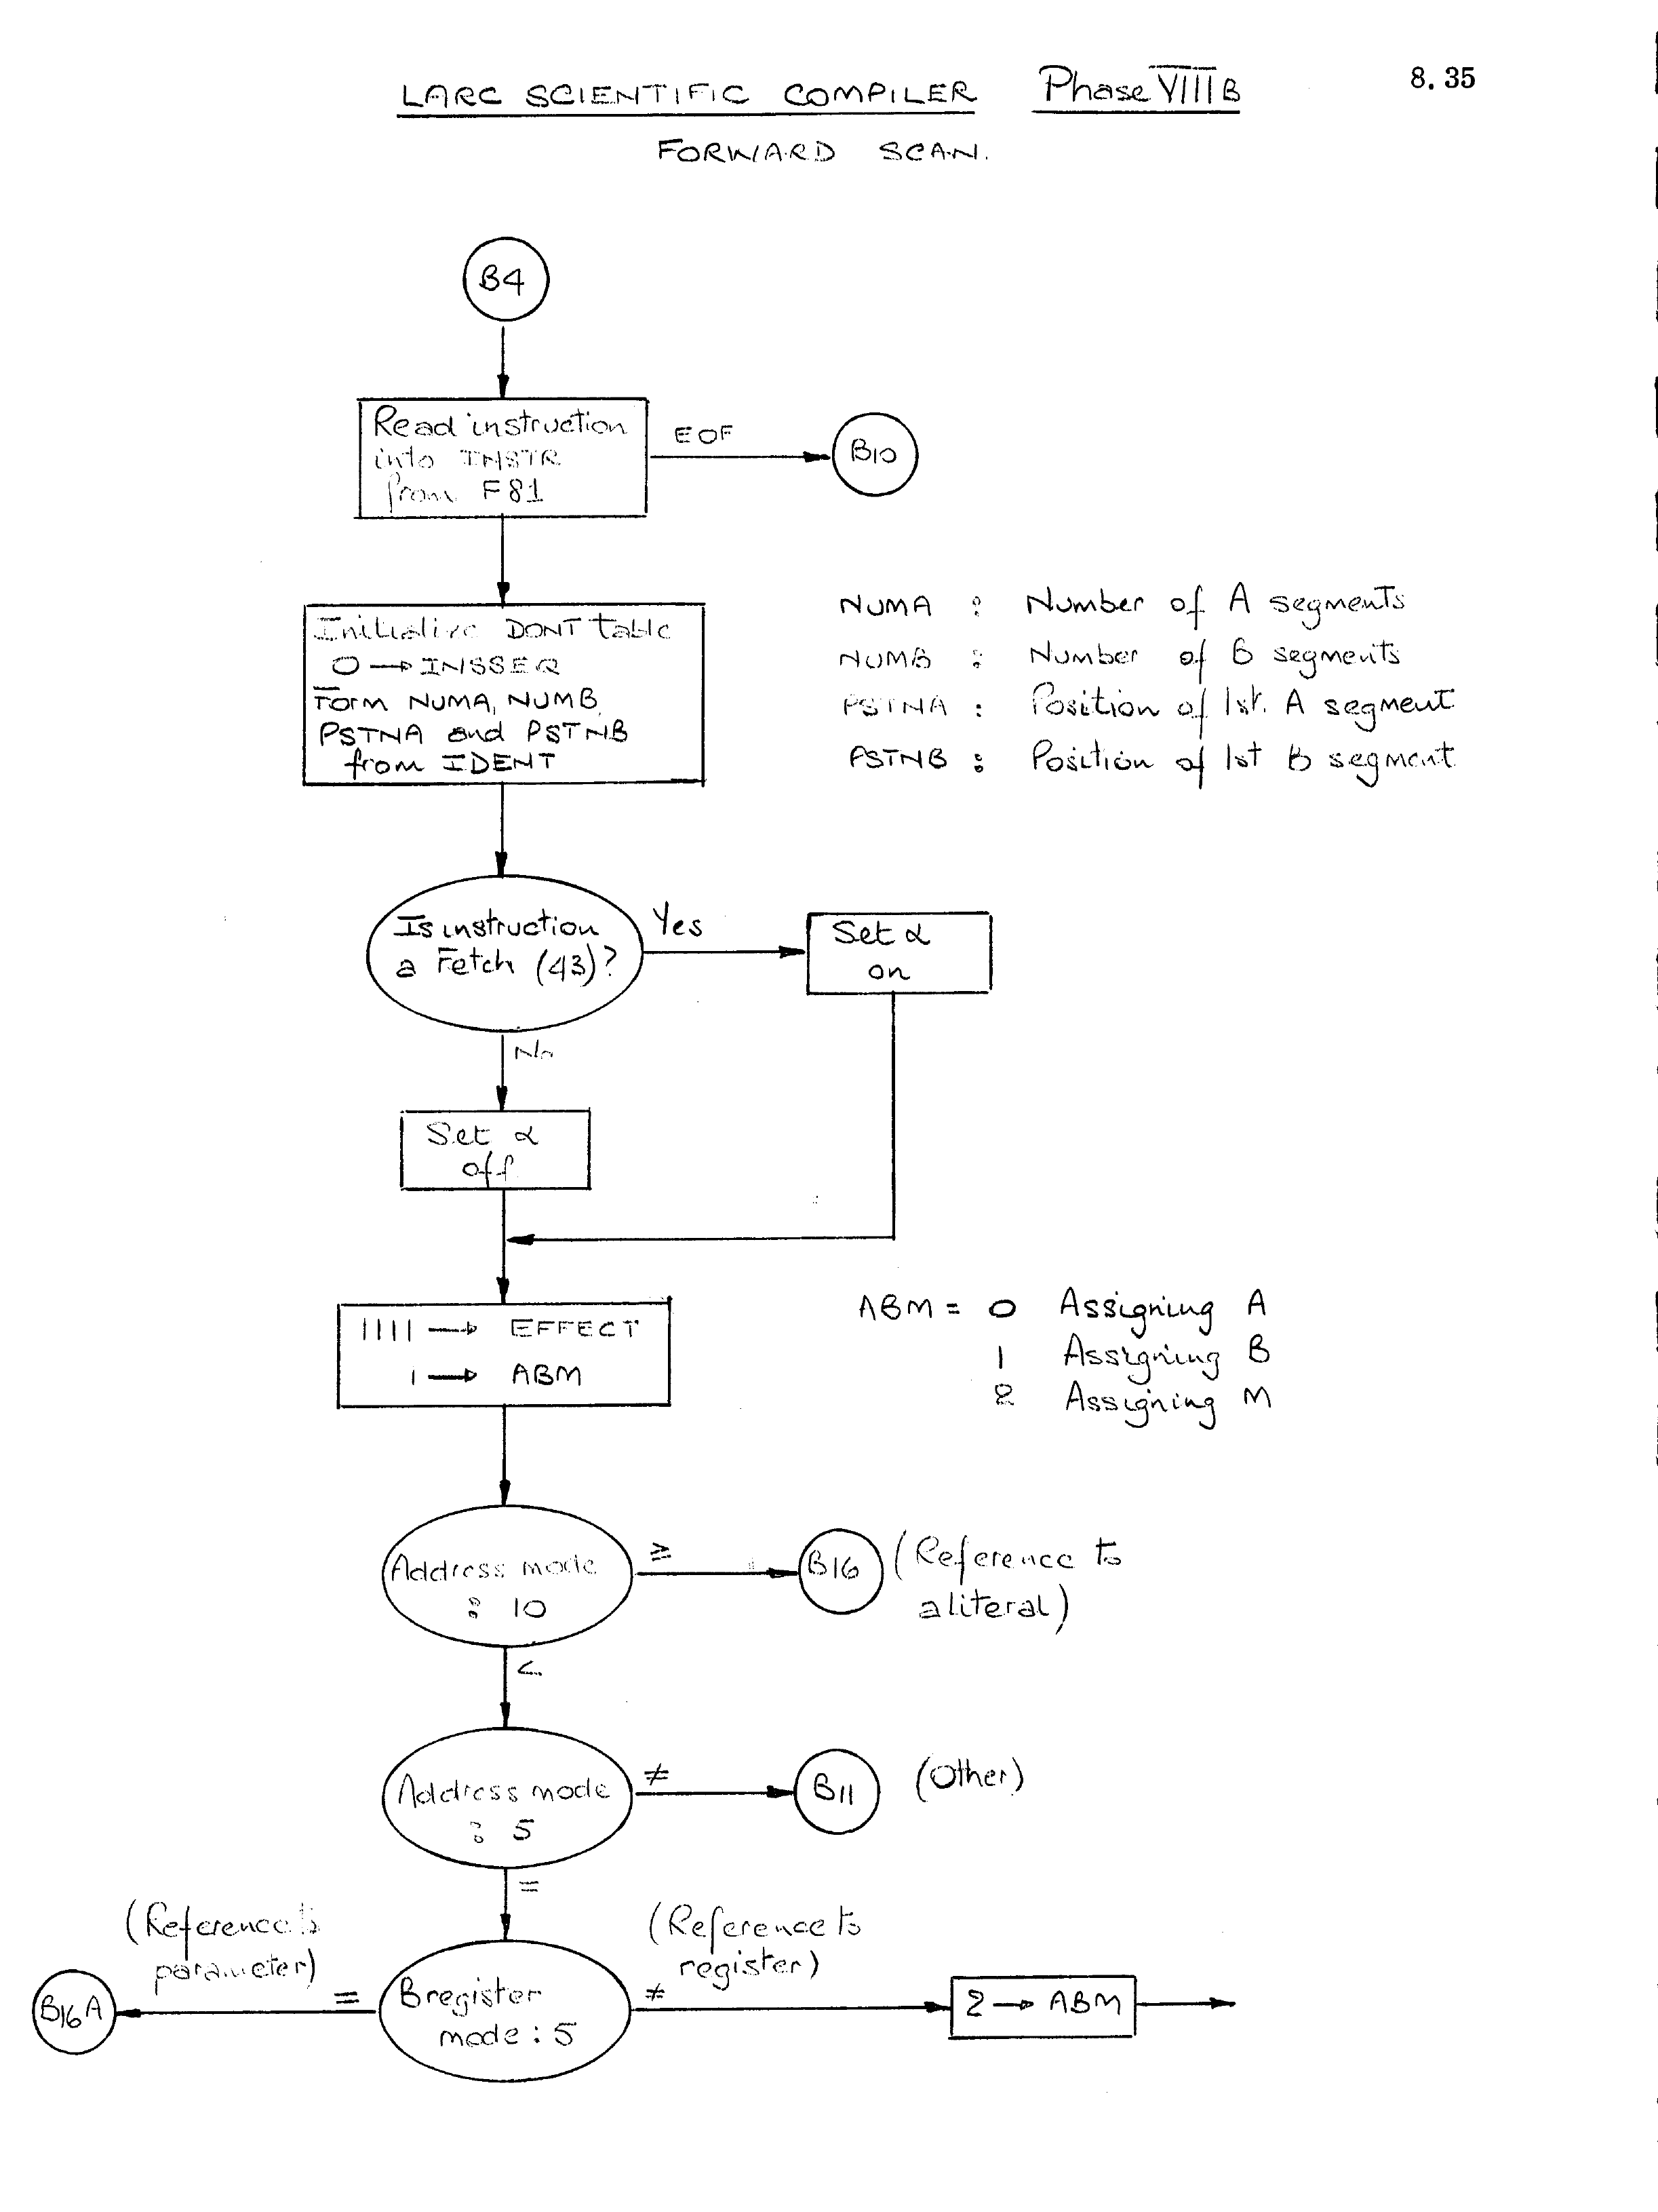 LARC SCIENTIFIC COMPILER Phase VIII B 8.35
FORWARD SCAN.
B4
Read instruction
into INSTR
from F81
EOF
B10
Initialize DONT table
0 → INSSEQ
Form NUMA, NUMB,
PSTNA and PSTNB
from IDENT
NUMA : Number of A segments
NUMB : Number of B segments
PSTNA : Position of 1st. A segment
PSTNB : Position of 1st B segment
Is instruction
a Fetch (43)?
Yes
Set α
on
No
Set α
off
1111 → EFFECT
1 → ABM
ABM = 0 Assigning A
1 Assigning B
2 Assigning M
Address mode
: 10
≥
B16
(Reference to
a literal)
<
Address mode
: 5
≠
B11
(Other)
=
(Reference to
parameter)
(Reference to
register)
B16A
=
B register
mode : 5
≠
2 → ABM